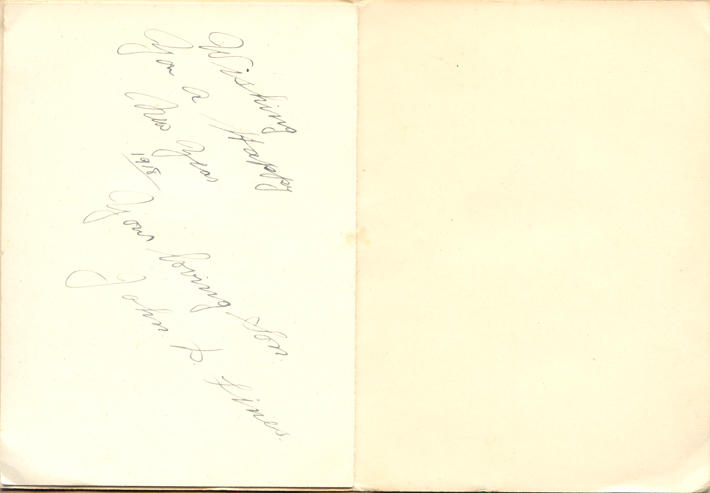 Wishing
You a Happy
New Year
1918
Your loving Son.
John P. Lines.